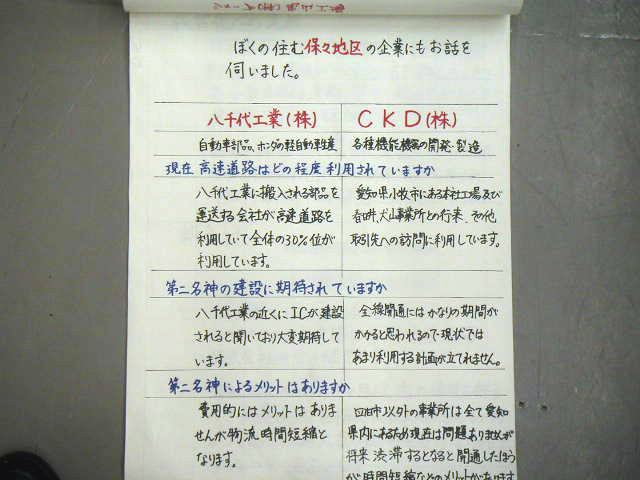 ぼくの住む保々地区の企業にもお話を
伺いました。
八千代工業(株)
自動車部品、ホンダの軽自動車生産
CKD(株)
各種機能機器の開発・製造
現在高速道路はどの程度利用されていますか
八千代工業に搬入される部品を
運送する会社が高速道路を
利用していて全体の30%位が
利用しています。
愛知県小牧市にある本社工場及び
春日井、犬山事業所との行来、その他
取引先への訪問に利用しています。
第二名神の建設に期待されていますか
八千代工業の近くにICが建設
されると聞いており大変期待して
います。
全線開通にはかなりの期間が
かかると思われるので現状では
あまり利用する計画が立てれません。
第二名神によるメリットはありますか
費用的にはメリットはありま
せんが物流時間短縮と
なります。
四日市以外の事業所は全て愛知
県内にあるため現在は問題ありませんが
将来渋滞するとなると開通したほう
が時間短縮などのメリットがあります